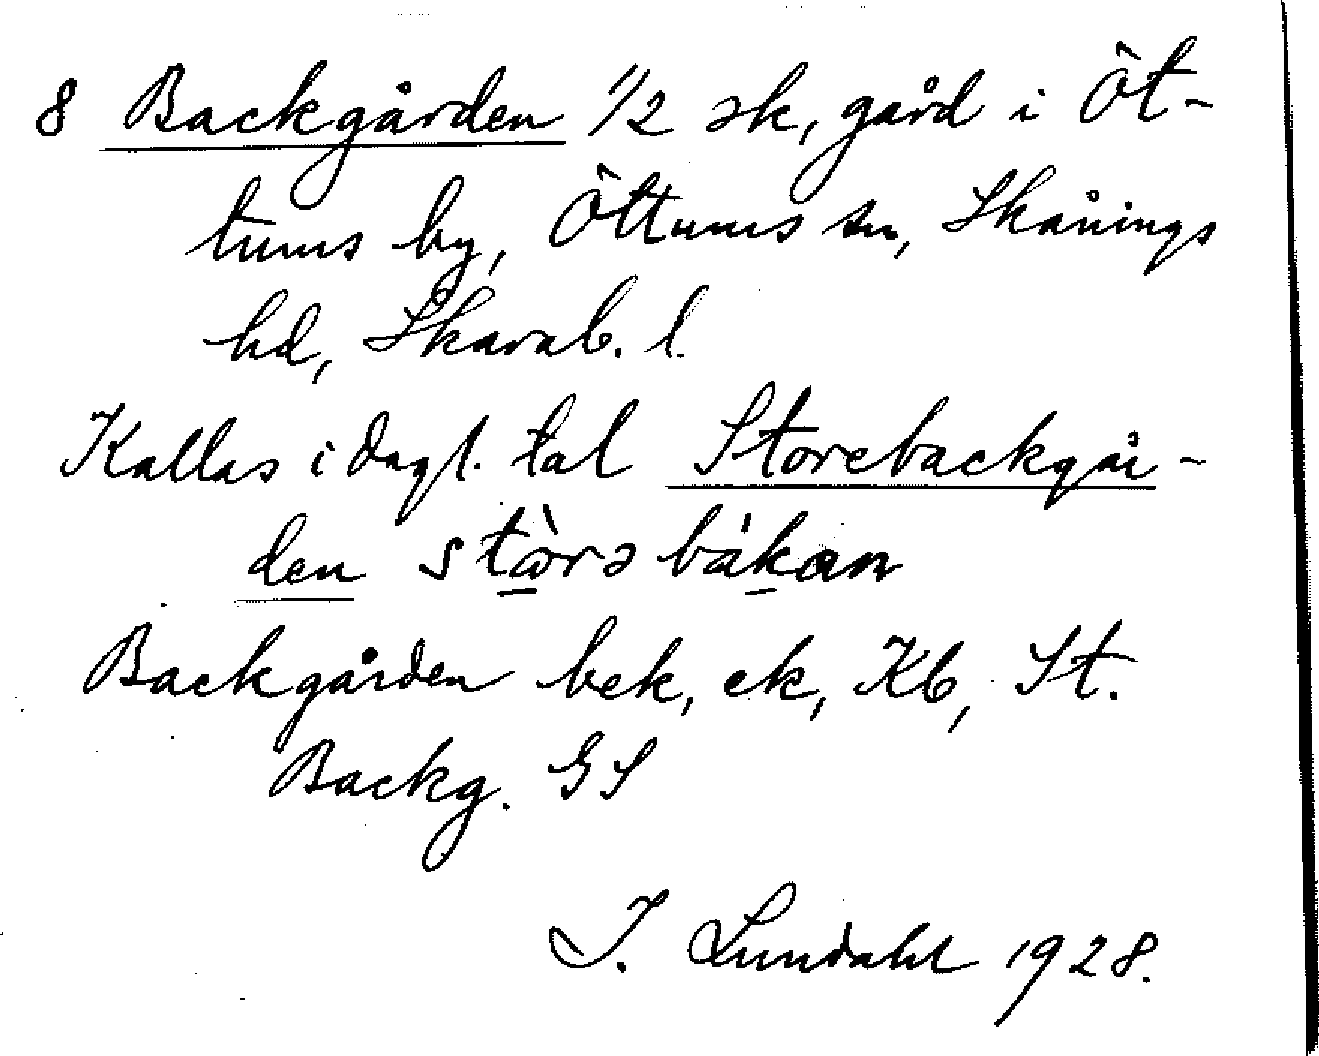 8 Backgården 1/2 sk, gård i Öt-
tums by, Öttums sn, Skånings
hd, Skarab. l.
Kallas i dagl. tal Storebackgår-
den
Backgården bek, ek, Kb, St.
Backg. GS
I. Lundahl 1928.